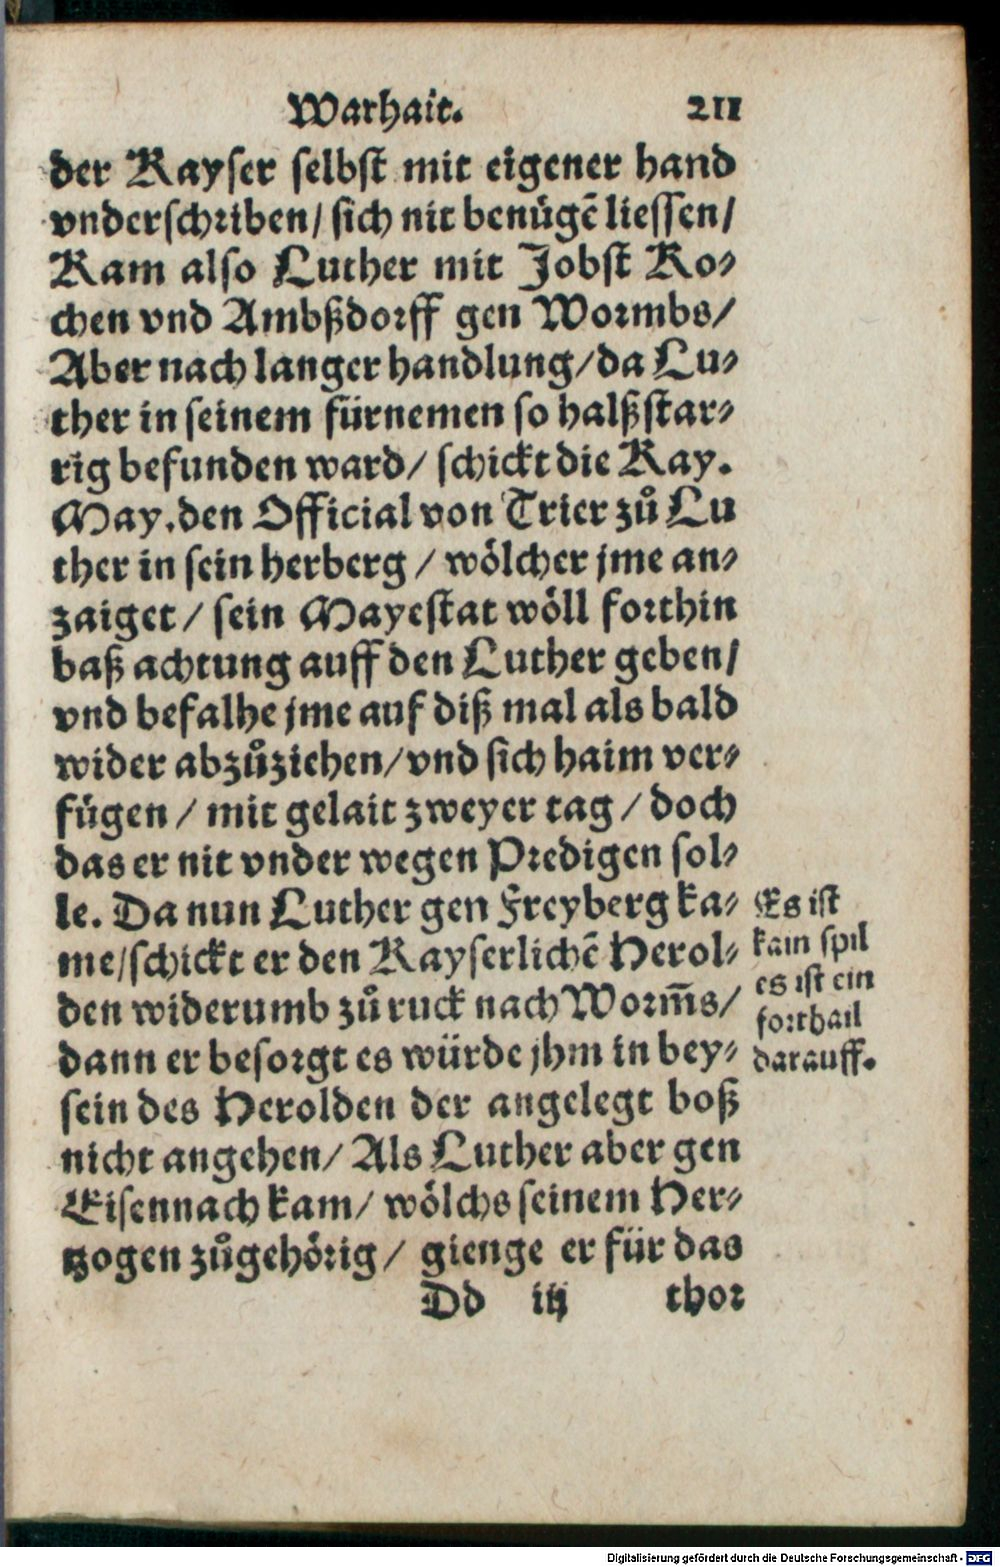 Warhait. 211
der Kayser selbst mit eigener hand
vnderschriben/ sich nit benügẽ liessen/
Kam also Luther mit Jobst Ko-
chen vnd Ambßdorff gen Wormbs/
Aber nach langer handlung/da Lu-
ther in seinem fürnemen so halßstar-
rig befunden ward/ schickt die Kay.
May.den Official von Trier zů Lu
ther in sein herberg / wölcher jme an-
zaiget / sein Mayestat wöll forthin
baß achtung auff den Luther geben/
vnd befalhe jme auf diß mal als bald
wider abzůziehen/vnd sich haim ver-
fügen / mit gelait zweyer tag / doch
das er nit vnder wegen Predigen sol-
le. Da nun Luther gen Freyberg ka-
me/schickt er den Kayserlichẽ Herol-
den widerumb zů ruck nach Worm̃s/
dann er besorgt es würde jhm in bey-
sein des Herolden der angelegt boß
nicht angehen/ Als Luther aber gen
Eisennach kam/ wölchs seinem Her-
tzogen zůgehörig/ gienge er für das
Dd iij thor
Es ist
kain spil
es ist ein
forthail
darauff.
Digitalisierung gefördert durch die Deutsche Forschungsgemeinschaft - DFG